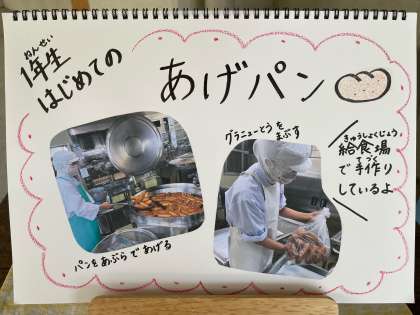 ねんせい
1年生
はじめての
あげパン
グラニューとうを
まぶす
きゅうしょくじょう
給食場
てづく
で手作り
しているよ
パンをあぶらであげる